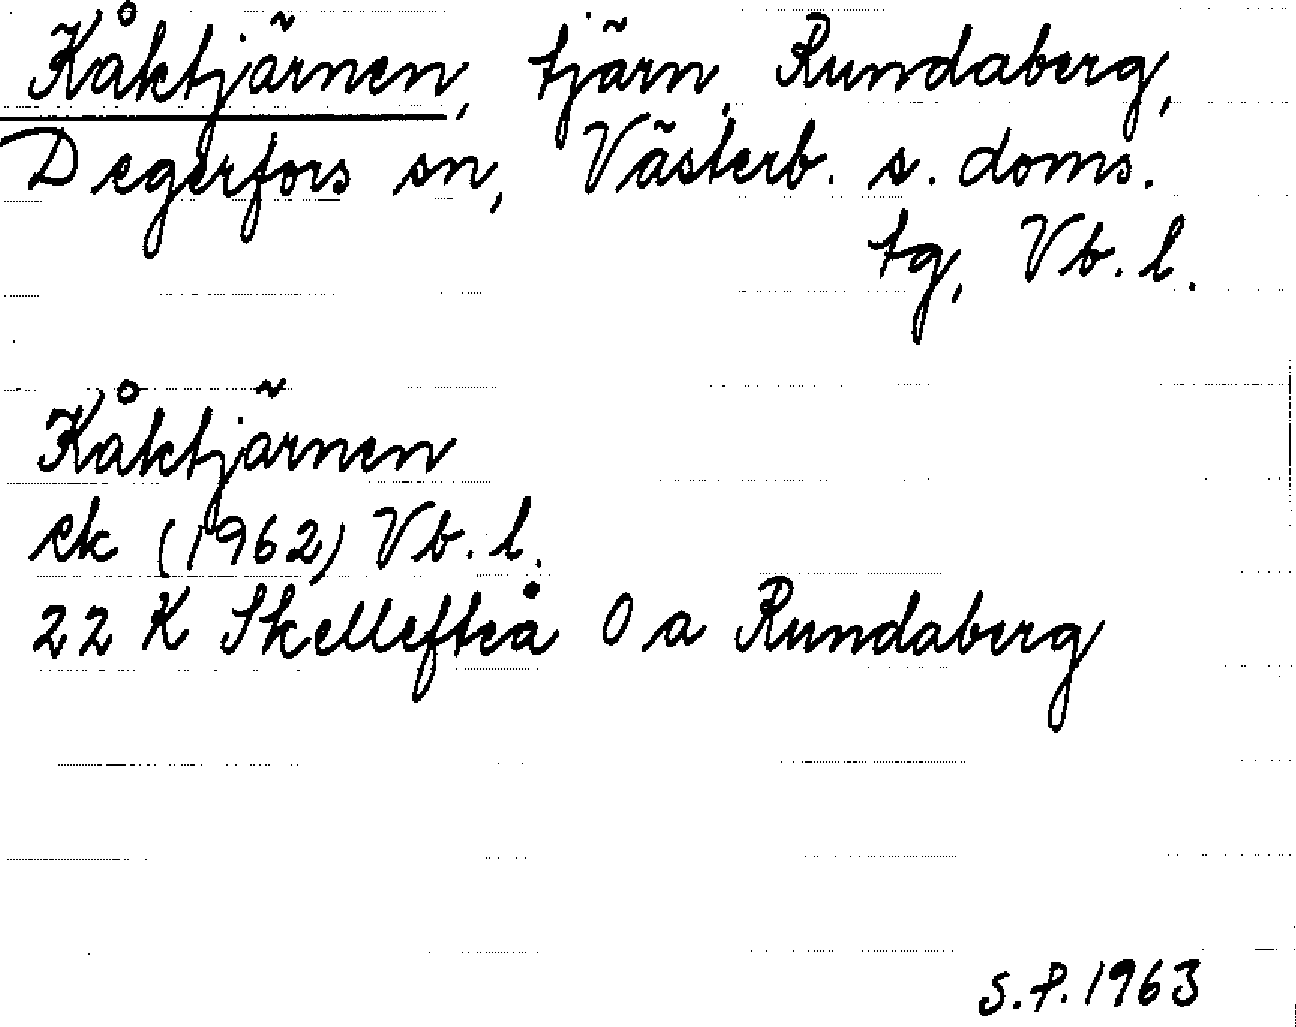 Kåktjärnen, tjärn, Rundaberg,
Degerfors sn, Västerb. s. doms.
tg, Vb. l.
Kåktjärnen
ek (1962) Vb. l.
22 K Skellefteå 0 a Rundaberg
S.P. 1963